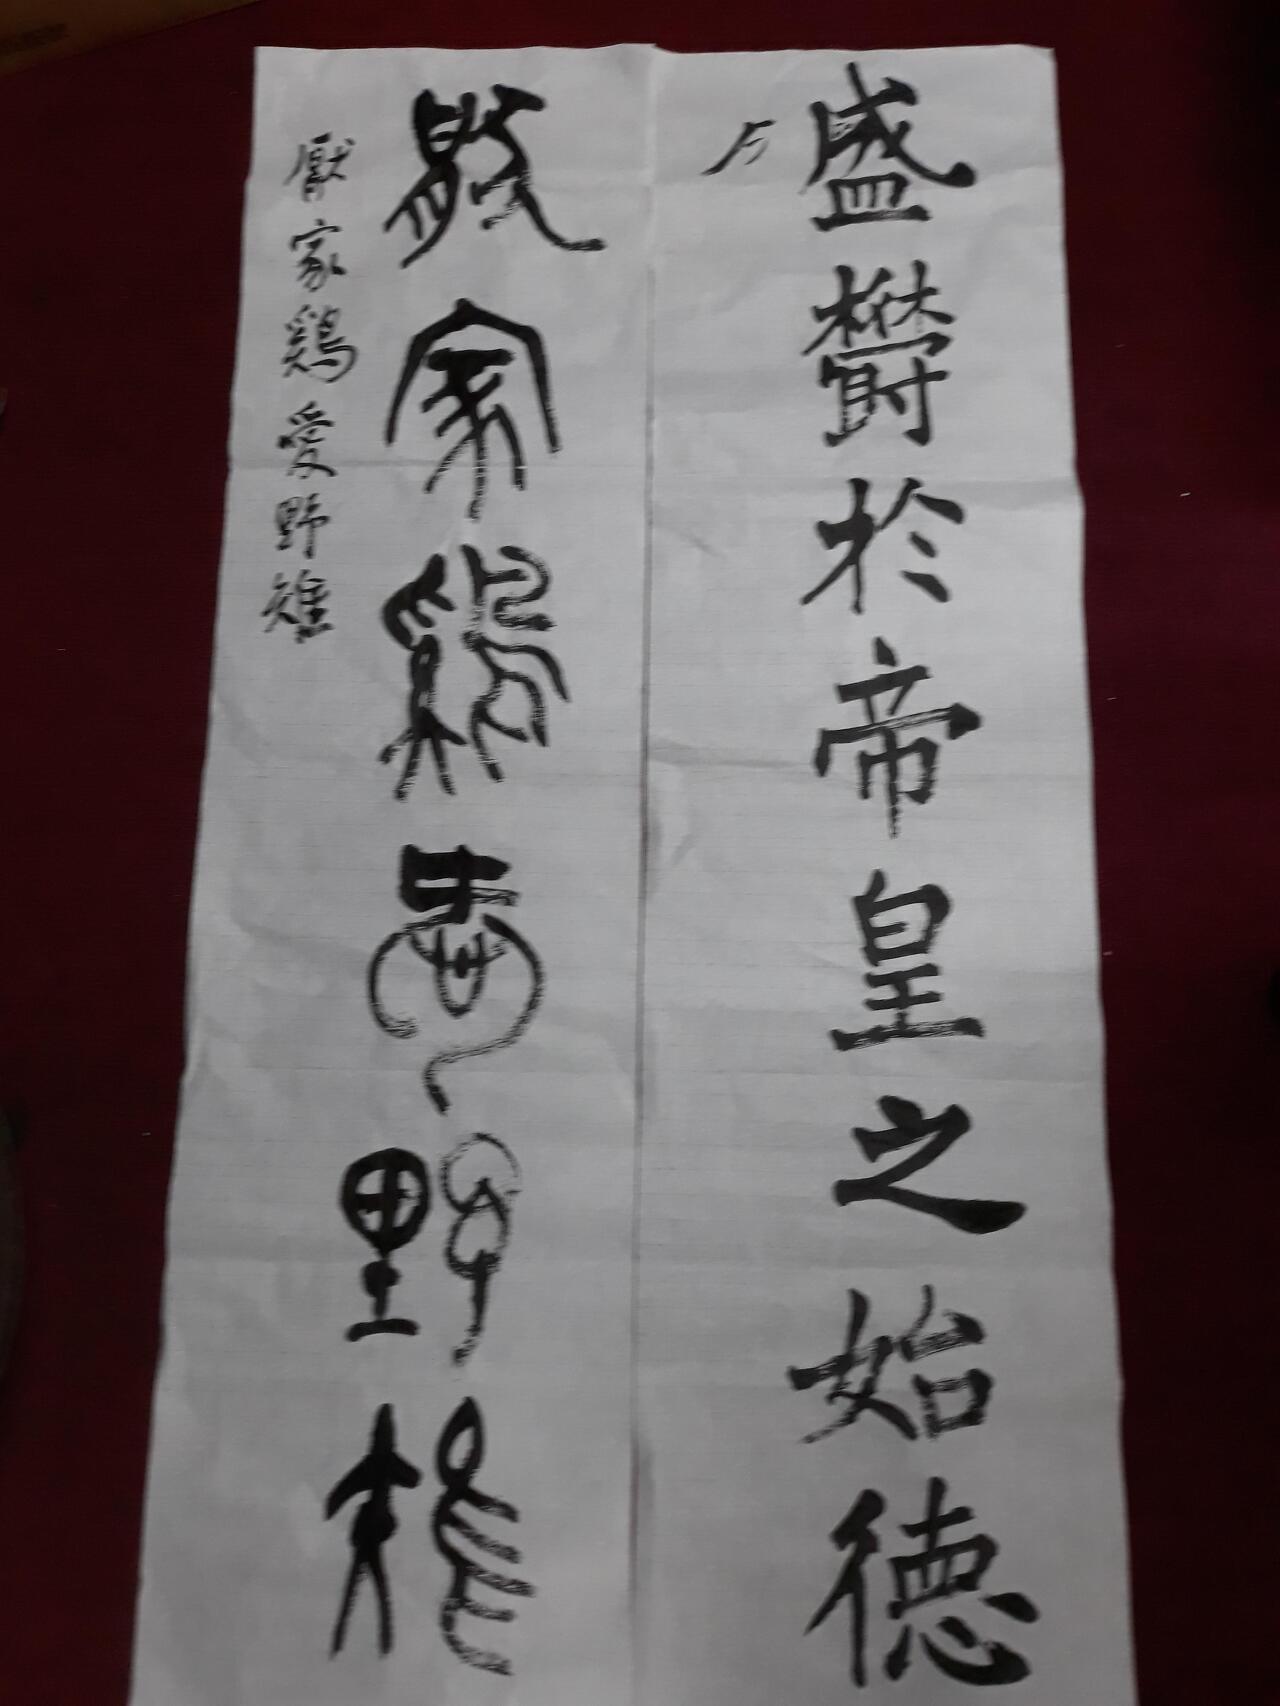 盛欝於帝皇之始德
厭家鷄愛野雉
厭家鷄愛野雉